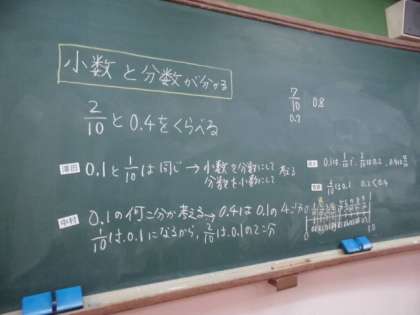 小数と分数が分かる
2/10と0.4をくらべる
7/10 0.8
0.7
澤田 0.1と1/10は同じ→小数を分数にして考える
分数を小数にして
中村 0.1の何こ分か考える→0.4は0.1の4こ分
1/10は0.1になるから、2/10は0.1の2こ分
1/10は0.1 0.2<0.4
0 1.0